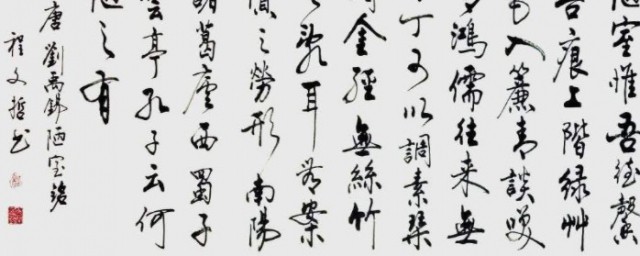 室惟吾德馨
苔痕上階緑艸
色入簾青談笑
鴻儒往来無
丁可以調素琴
金經無絲竹
之亂耳無案
牘之勞形南陽
諸葛廬西蜀子
雲亭孔子云何
陋之有
唐劉禹錫陋室銘
程文哲书